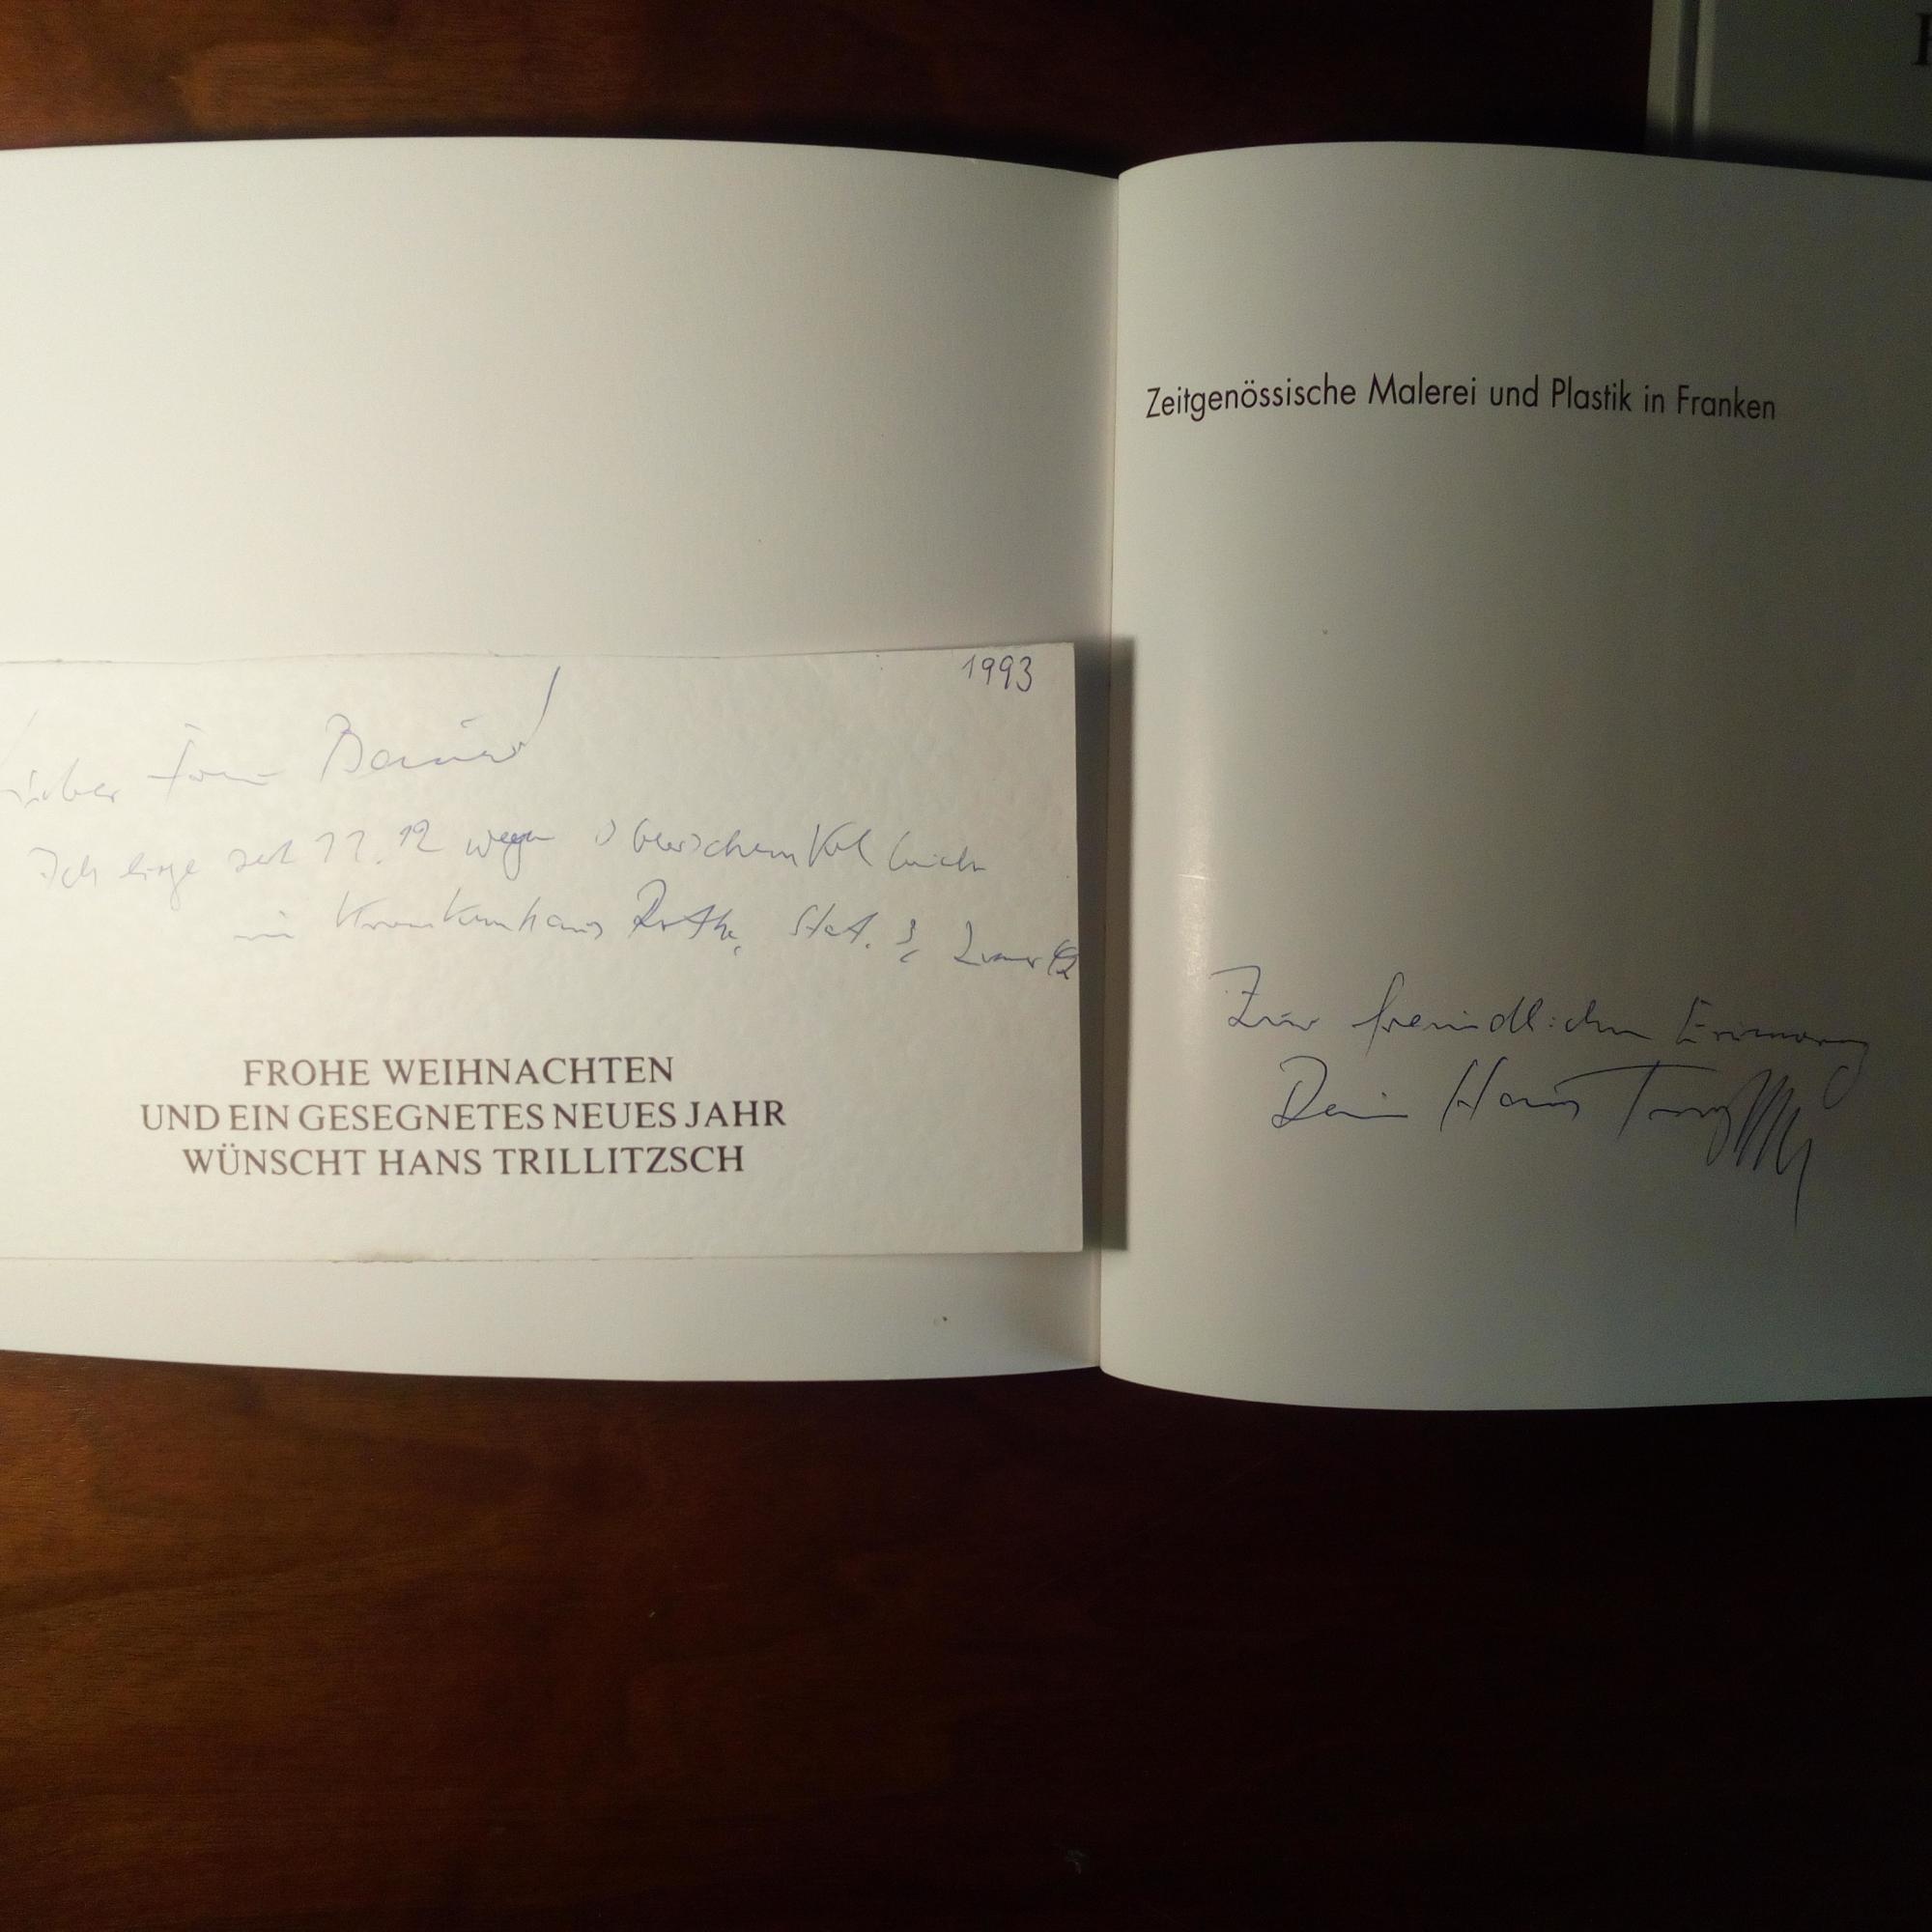 1993
Ich liege seit 11.12 wegen Oberschenkelbruch
im Krankenhaus Stat. 3
FROHE WEIHNACHTEN
UND EIN GESEGNETES NEUES JAHR
WÜNSCHT HANS TRILLITZSCH
Zeitgenössische Malerei und Plastik in Franken
Zur freundlichen Erinnerung
Dein Hans